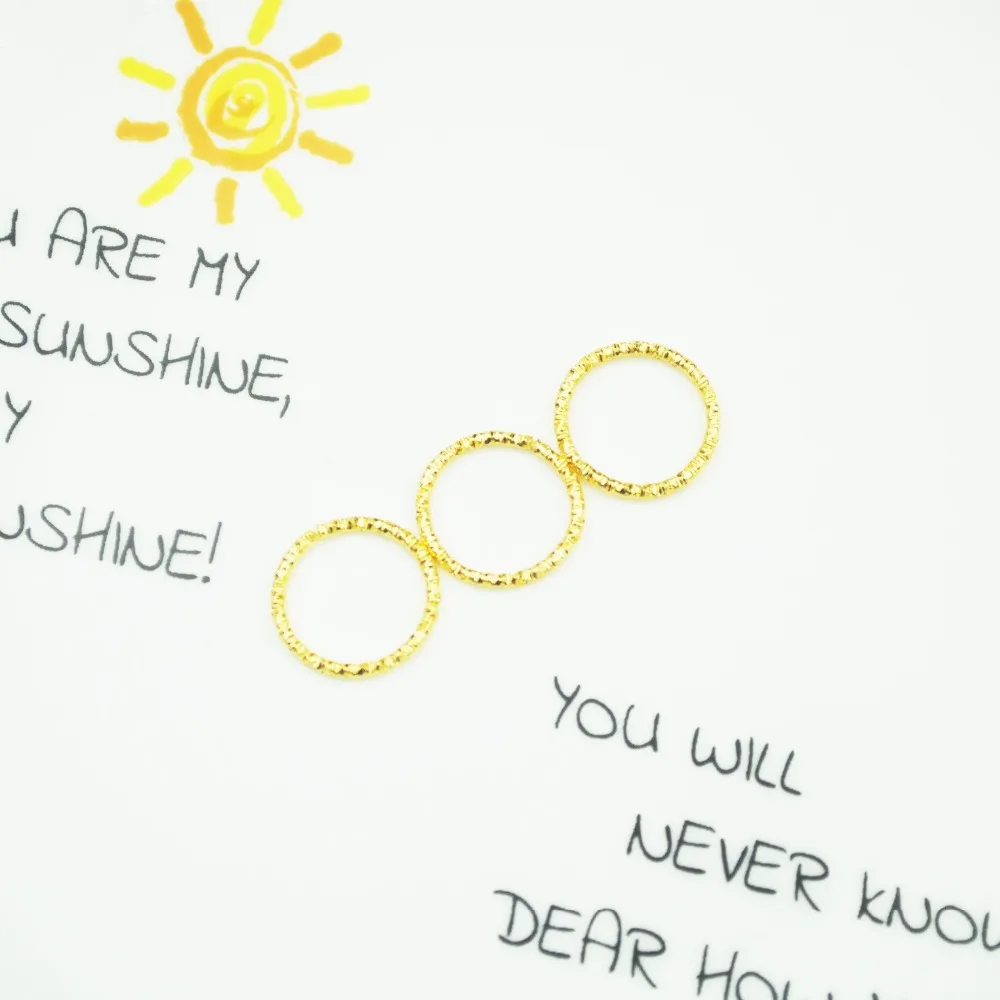 U ARE MY
SUNSHINE,
Y
NSHINE!
YOU WILL
NEVER KNOW
DEAR HOW